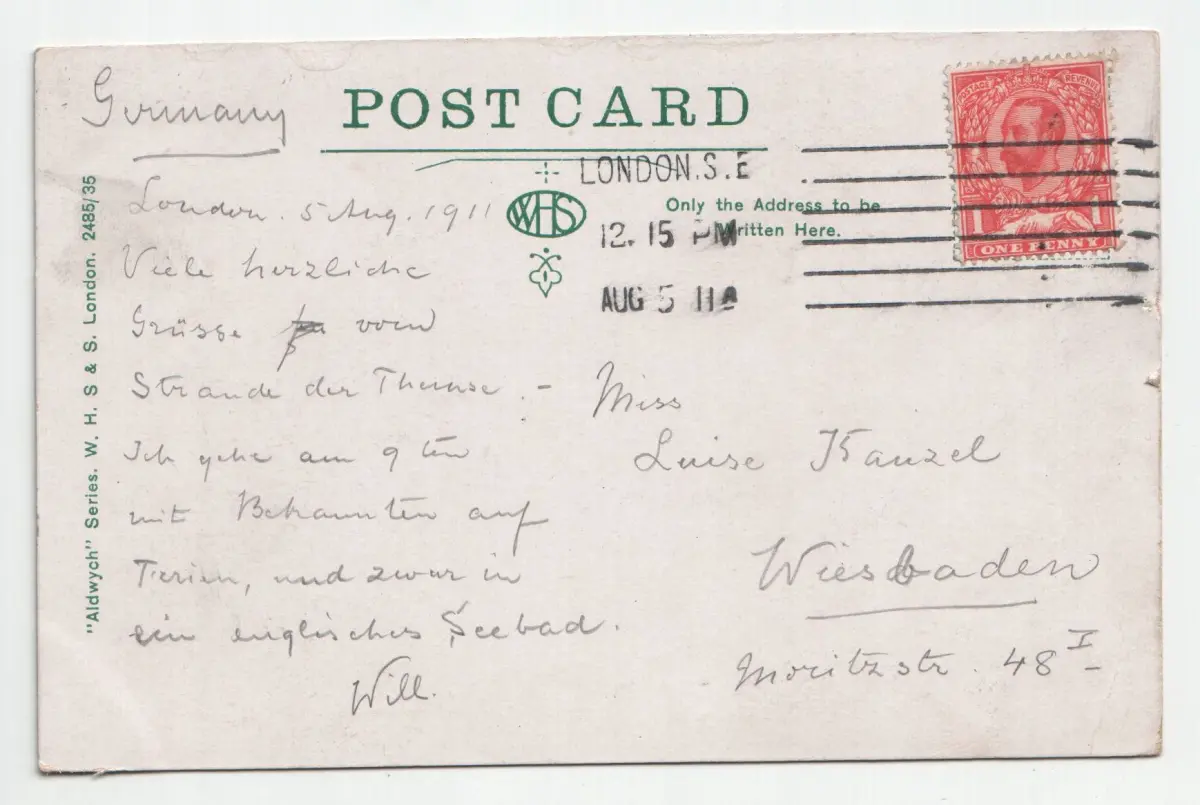 Germany
POST CARD
LONDON. S.E
12. 15 PM
AUG 5 11
WHS
Only the Address to be
Written Here.
POSTAGE REVENUE
1 1
ONE PENNY
"Aldwych" Series. W. H. S & S. London. 2485/35
London. 5 Aug. 1911
Viele herzliche
Grüsse vom
Strande der Themse. -
Ich gehe am 9ten
mit Bekannten auf
Ferien, und zwar in
ein englisches Seebad.
Will.
Miss
Luise Kanzel
Wiesbaden
Moritzstr. 48 I